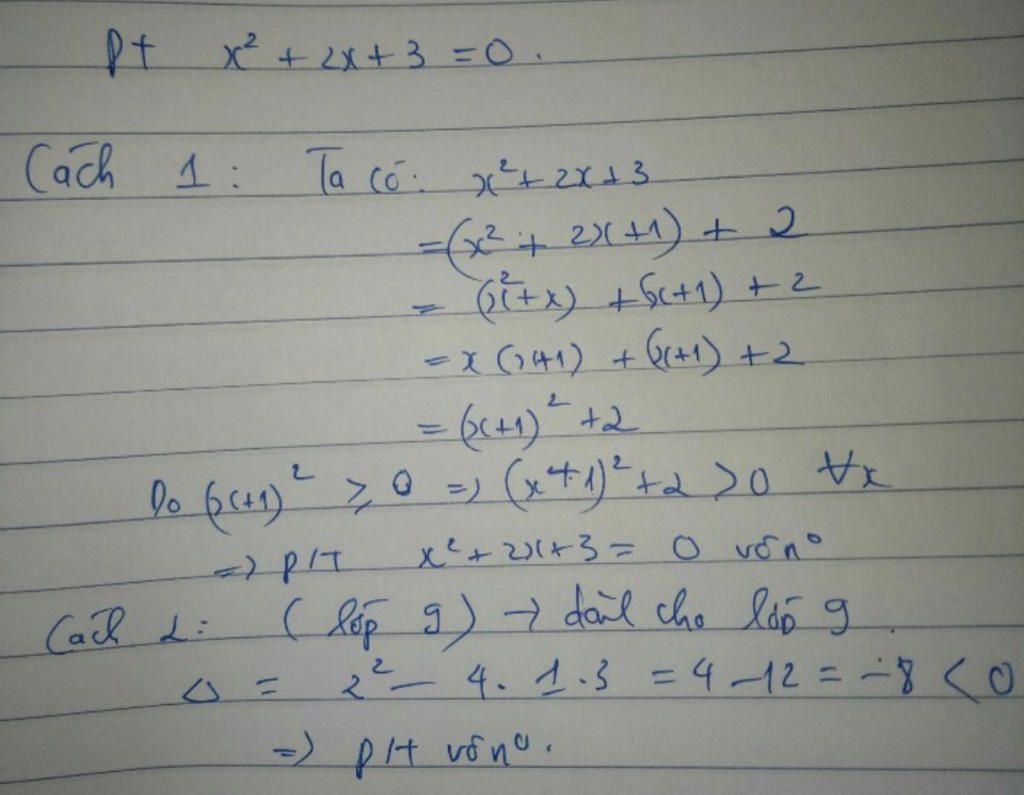 pt x² + 2x + 3 = 0.
Cách 1: Ta có: x² + 2x + 3
= (x² + 2x + 1) + 2
= (x² + x) + (x+1) + 2
= x (x+1) + (x+1) + 2
= (x+1)² + 2
Do (x+1)² ≥ 0 => (x+1)² + 2 > 0 ∀x
=> p/t x² + 2x + 3 = 0 vô nº
Cách 2: (lớp 9) → dành cho lớp 9.
Δ = 2² - 4.1.3 = 4 - 12 = -8 < 0
=> p/t vô nº.